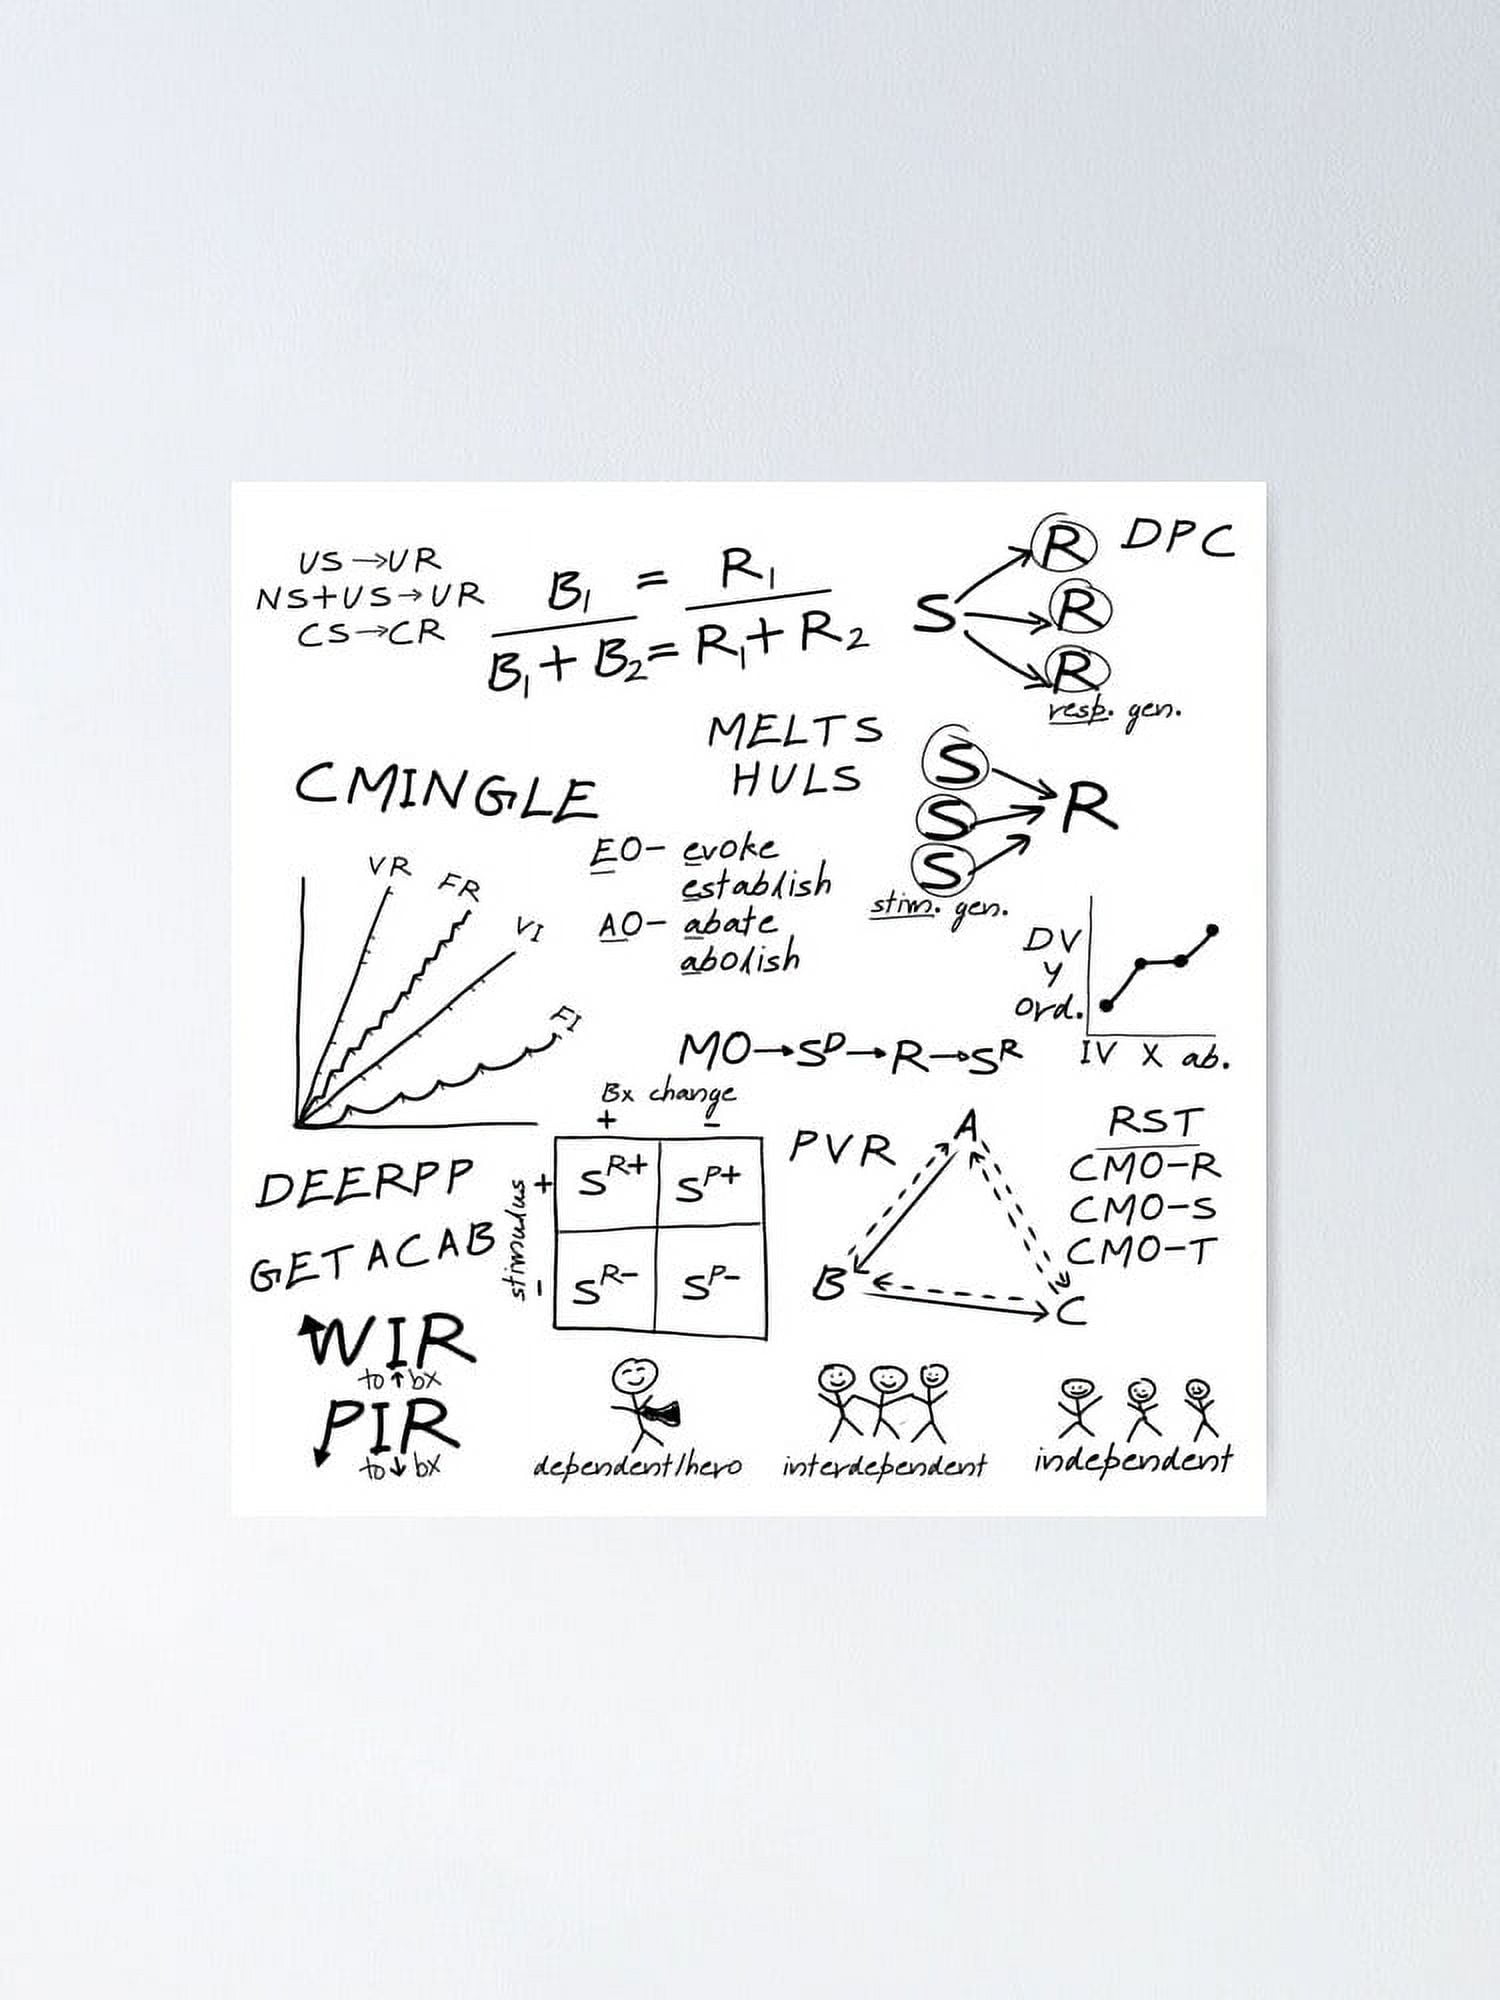 US→UR
NS+US→UR
CS→CR
B₁ = R₁
B₁+B₂= R₁+R₂
DPC
S
R
R
R
resp. gen.
MELTS
HULS
CMINGLE
S
S
S
R
stim. gen.
EO- evoke
establish
AO- abate
abolish
VR
FR
VI
FI
DV
y
ord.
IV X ab.
MO→Sᴰ→R→Sᴿ
Bx change
+ -
stimulus
+
-
Sᴿ⁺ Sᴾ⁺
Sᴿ⁻ Sᴾ⁻
PVR
A
B
C
RST
CMO-R
CMO-S
CMO-T
DEERPP
GETACAB
WIR
to ↑ bx
PIR
to ↓ bx
dependent/hero
interdependent
independent